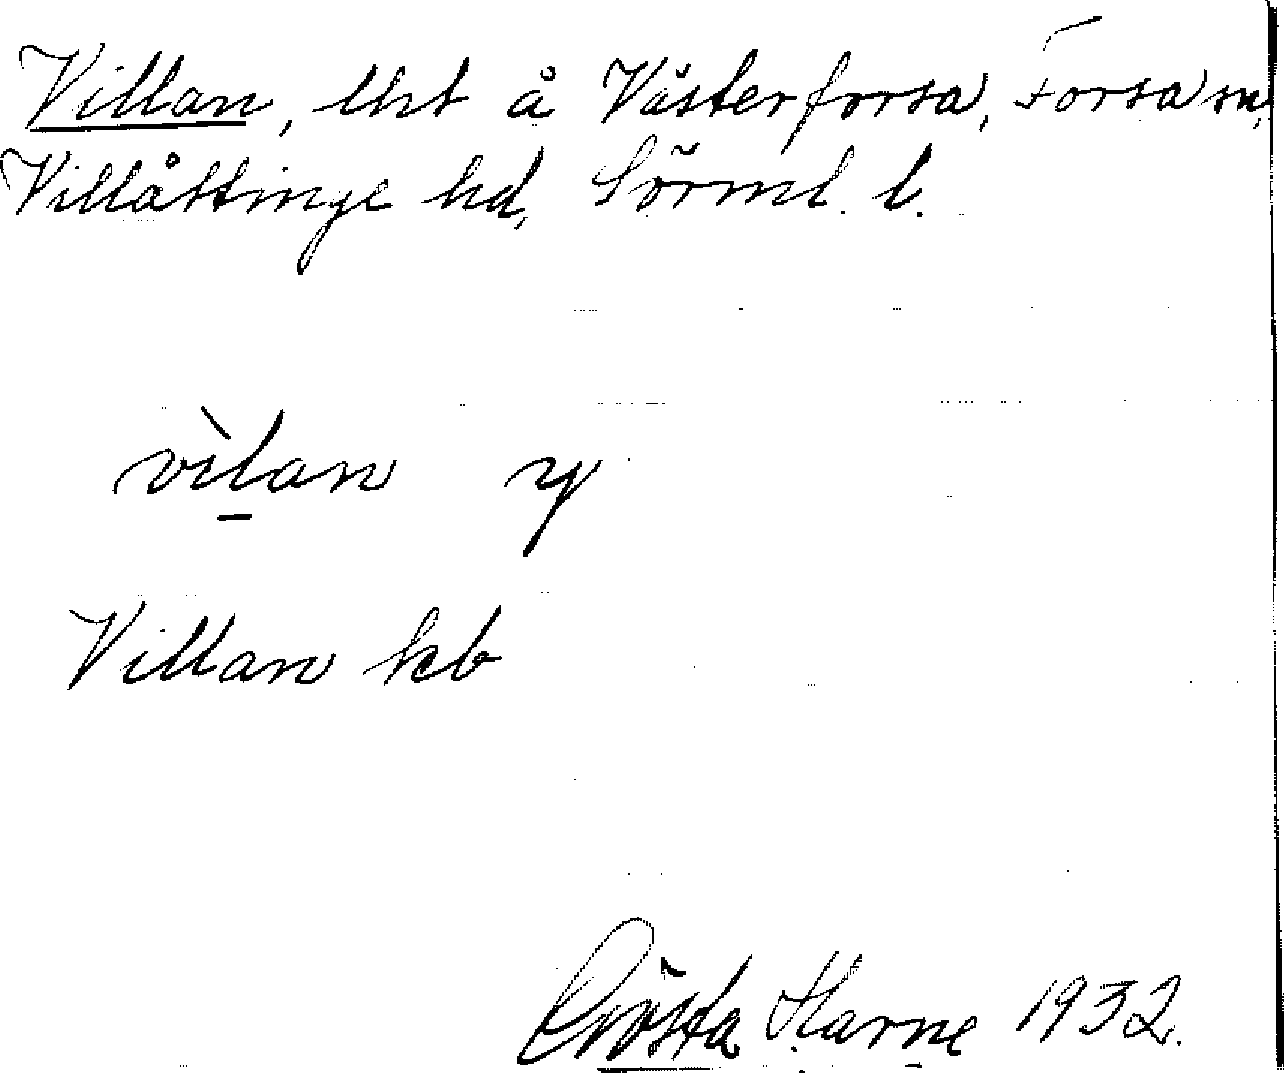 Villan, lht å Västerforsa, Forsa sn,
Villåttinge hd, Sörml. l.
vìlan y
Villan kb
Gösta Harne 1932.